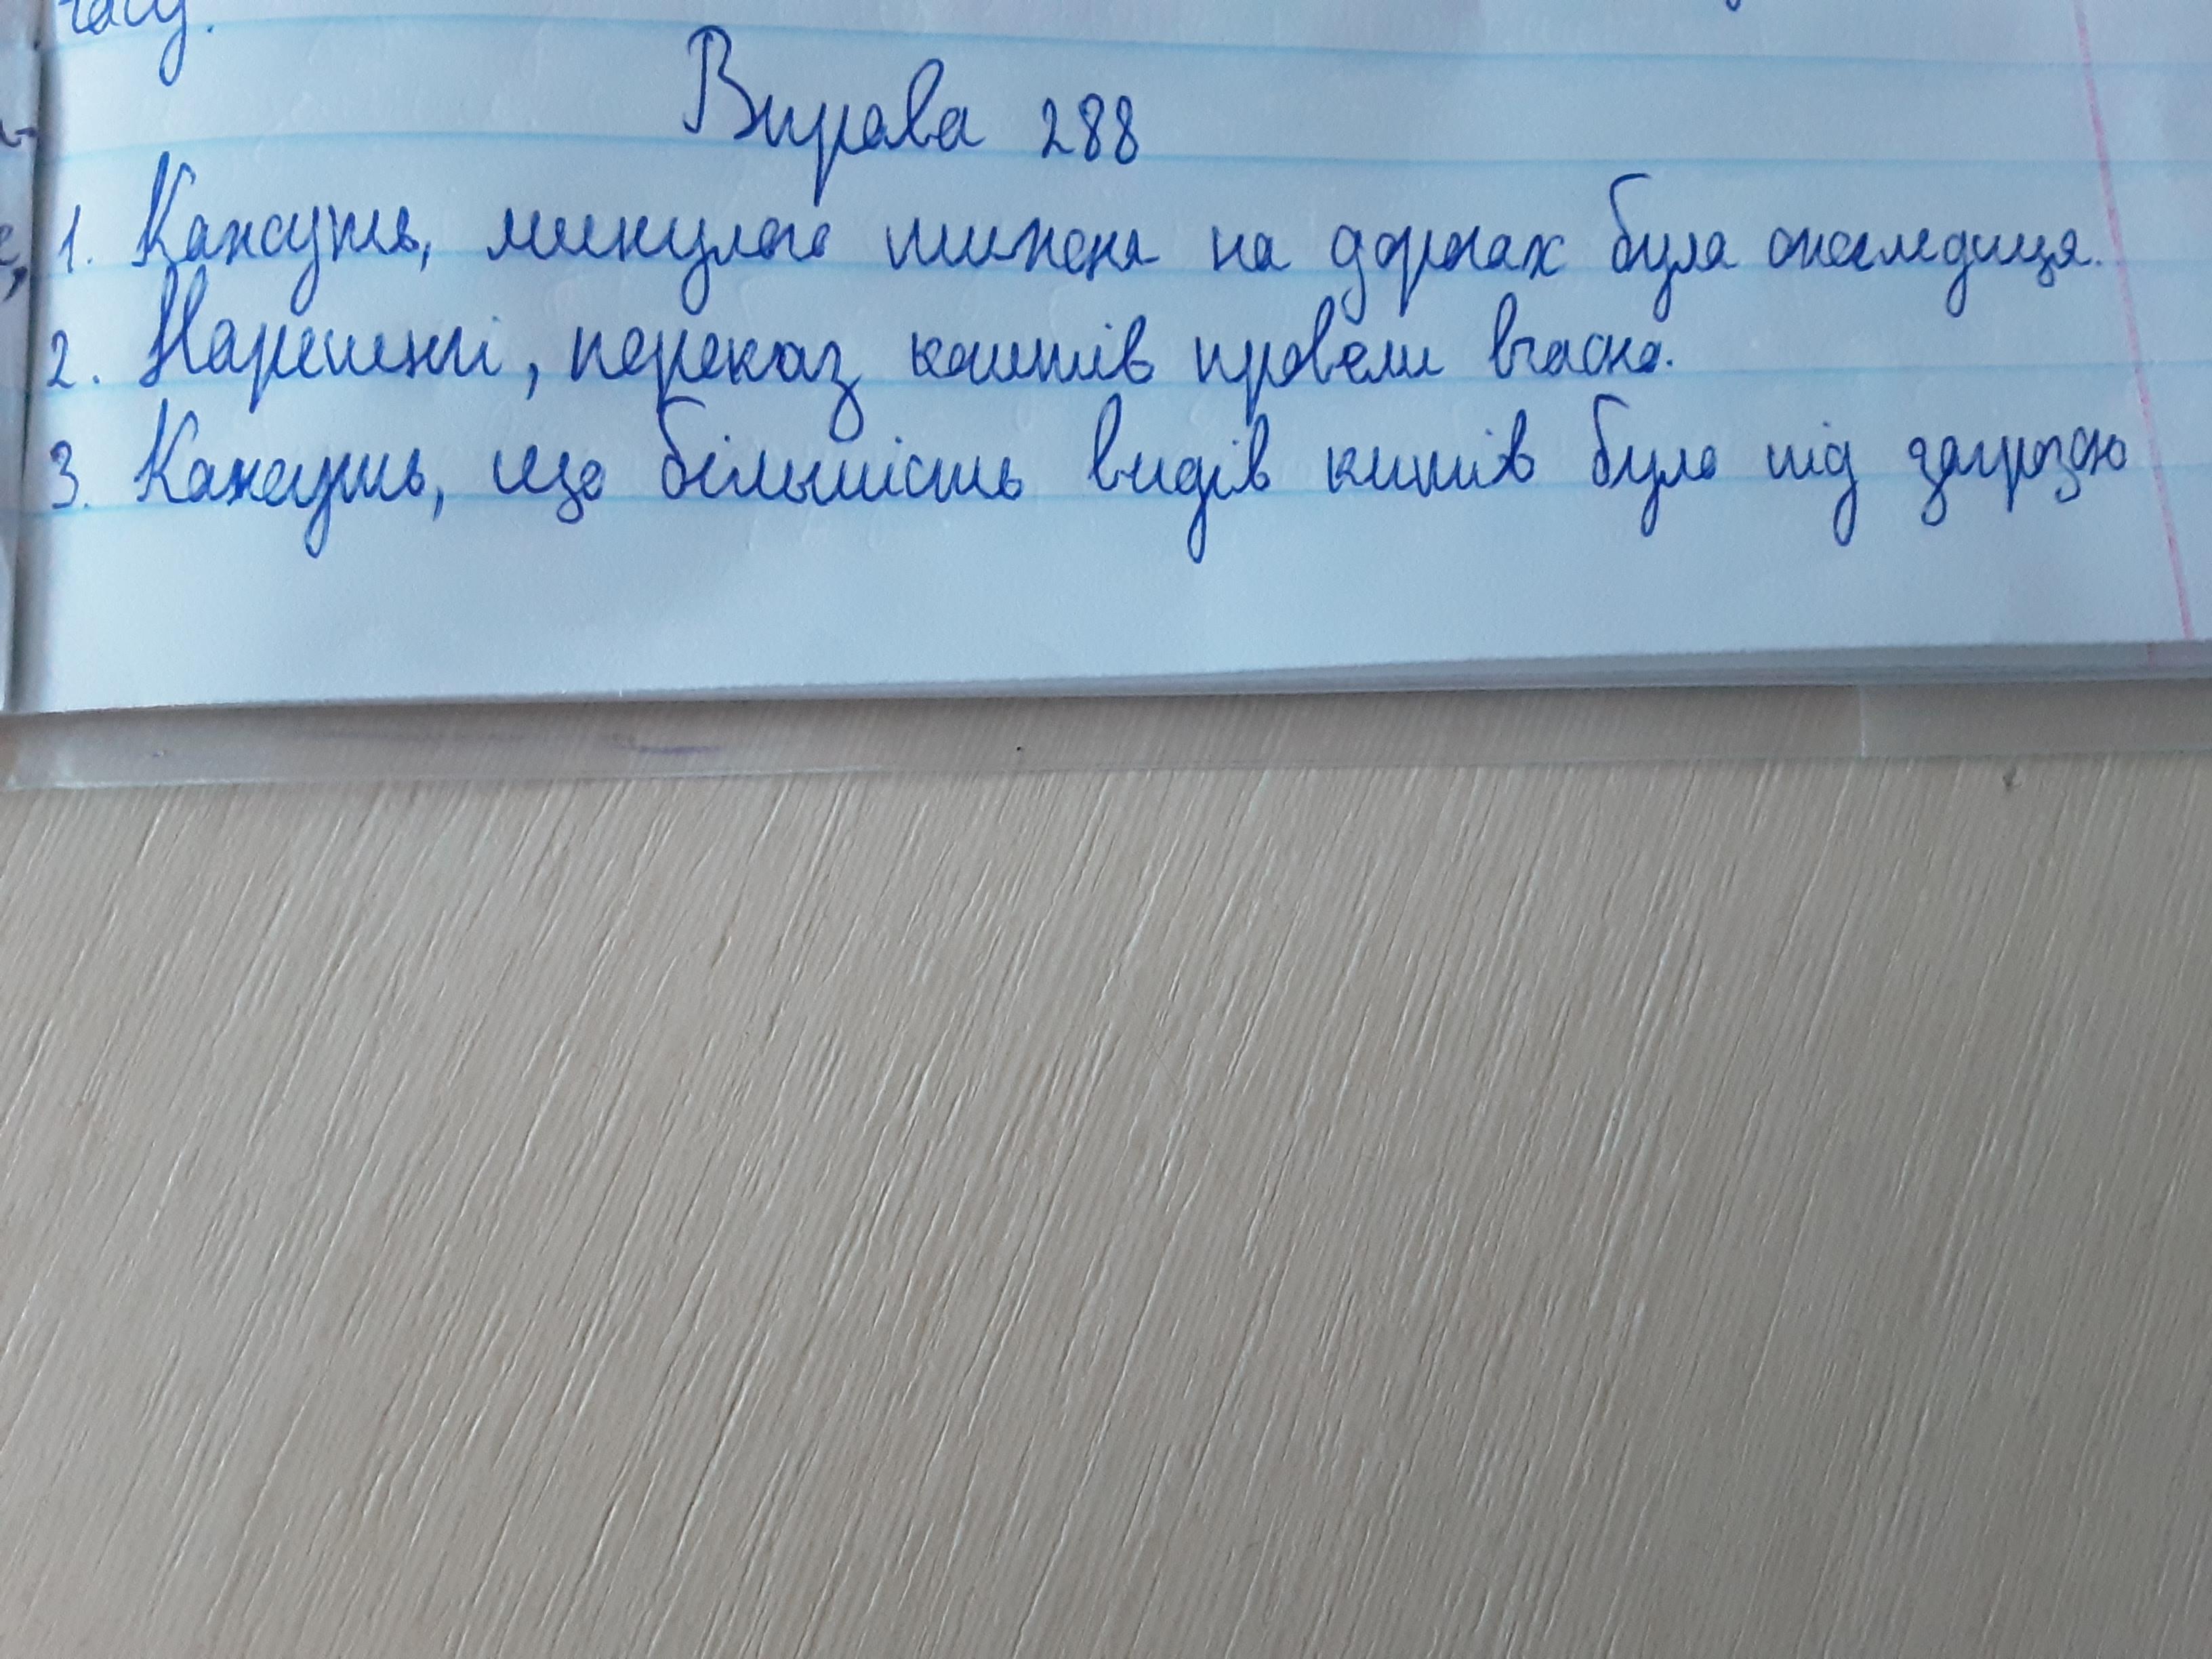 часу.
Вправа 288
1. Кажуть, минулого тижня на дорогах була ожеледиця.
2. Нарешті, переказ коштів провели вчасно.
3. Кажуть, що більшість видів китів було під загрозою